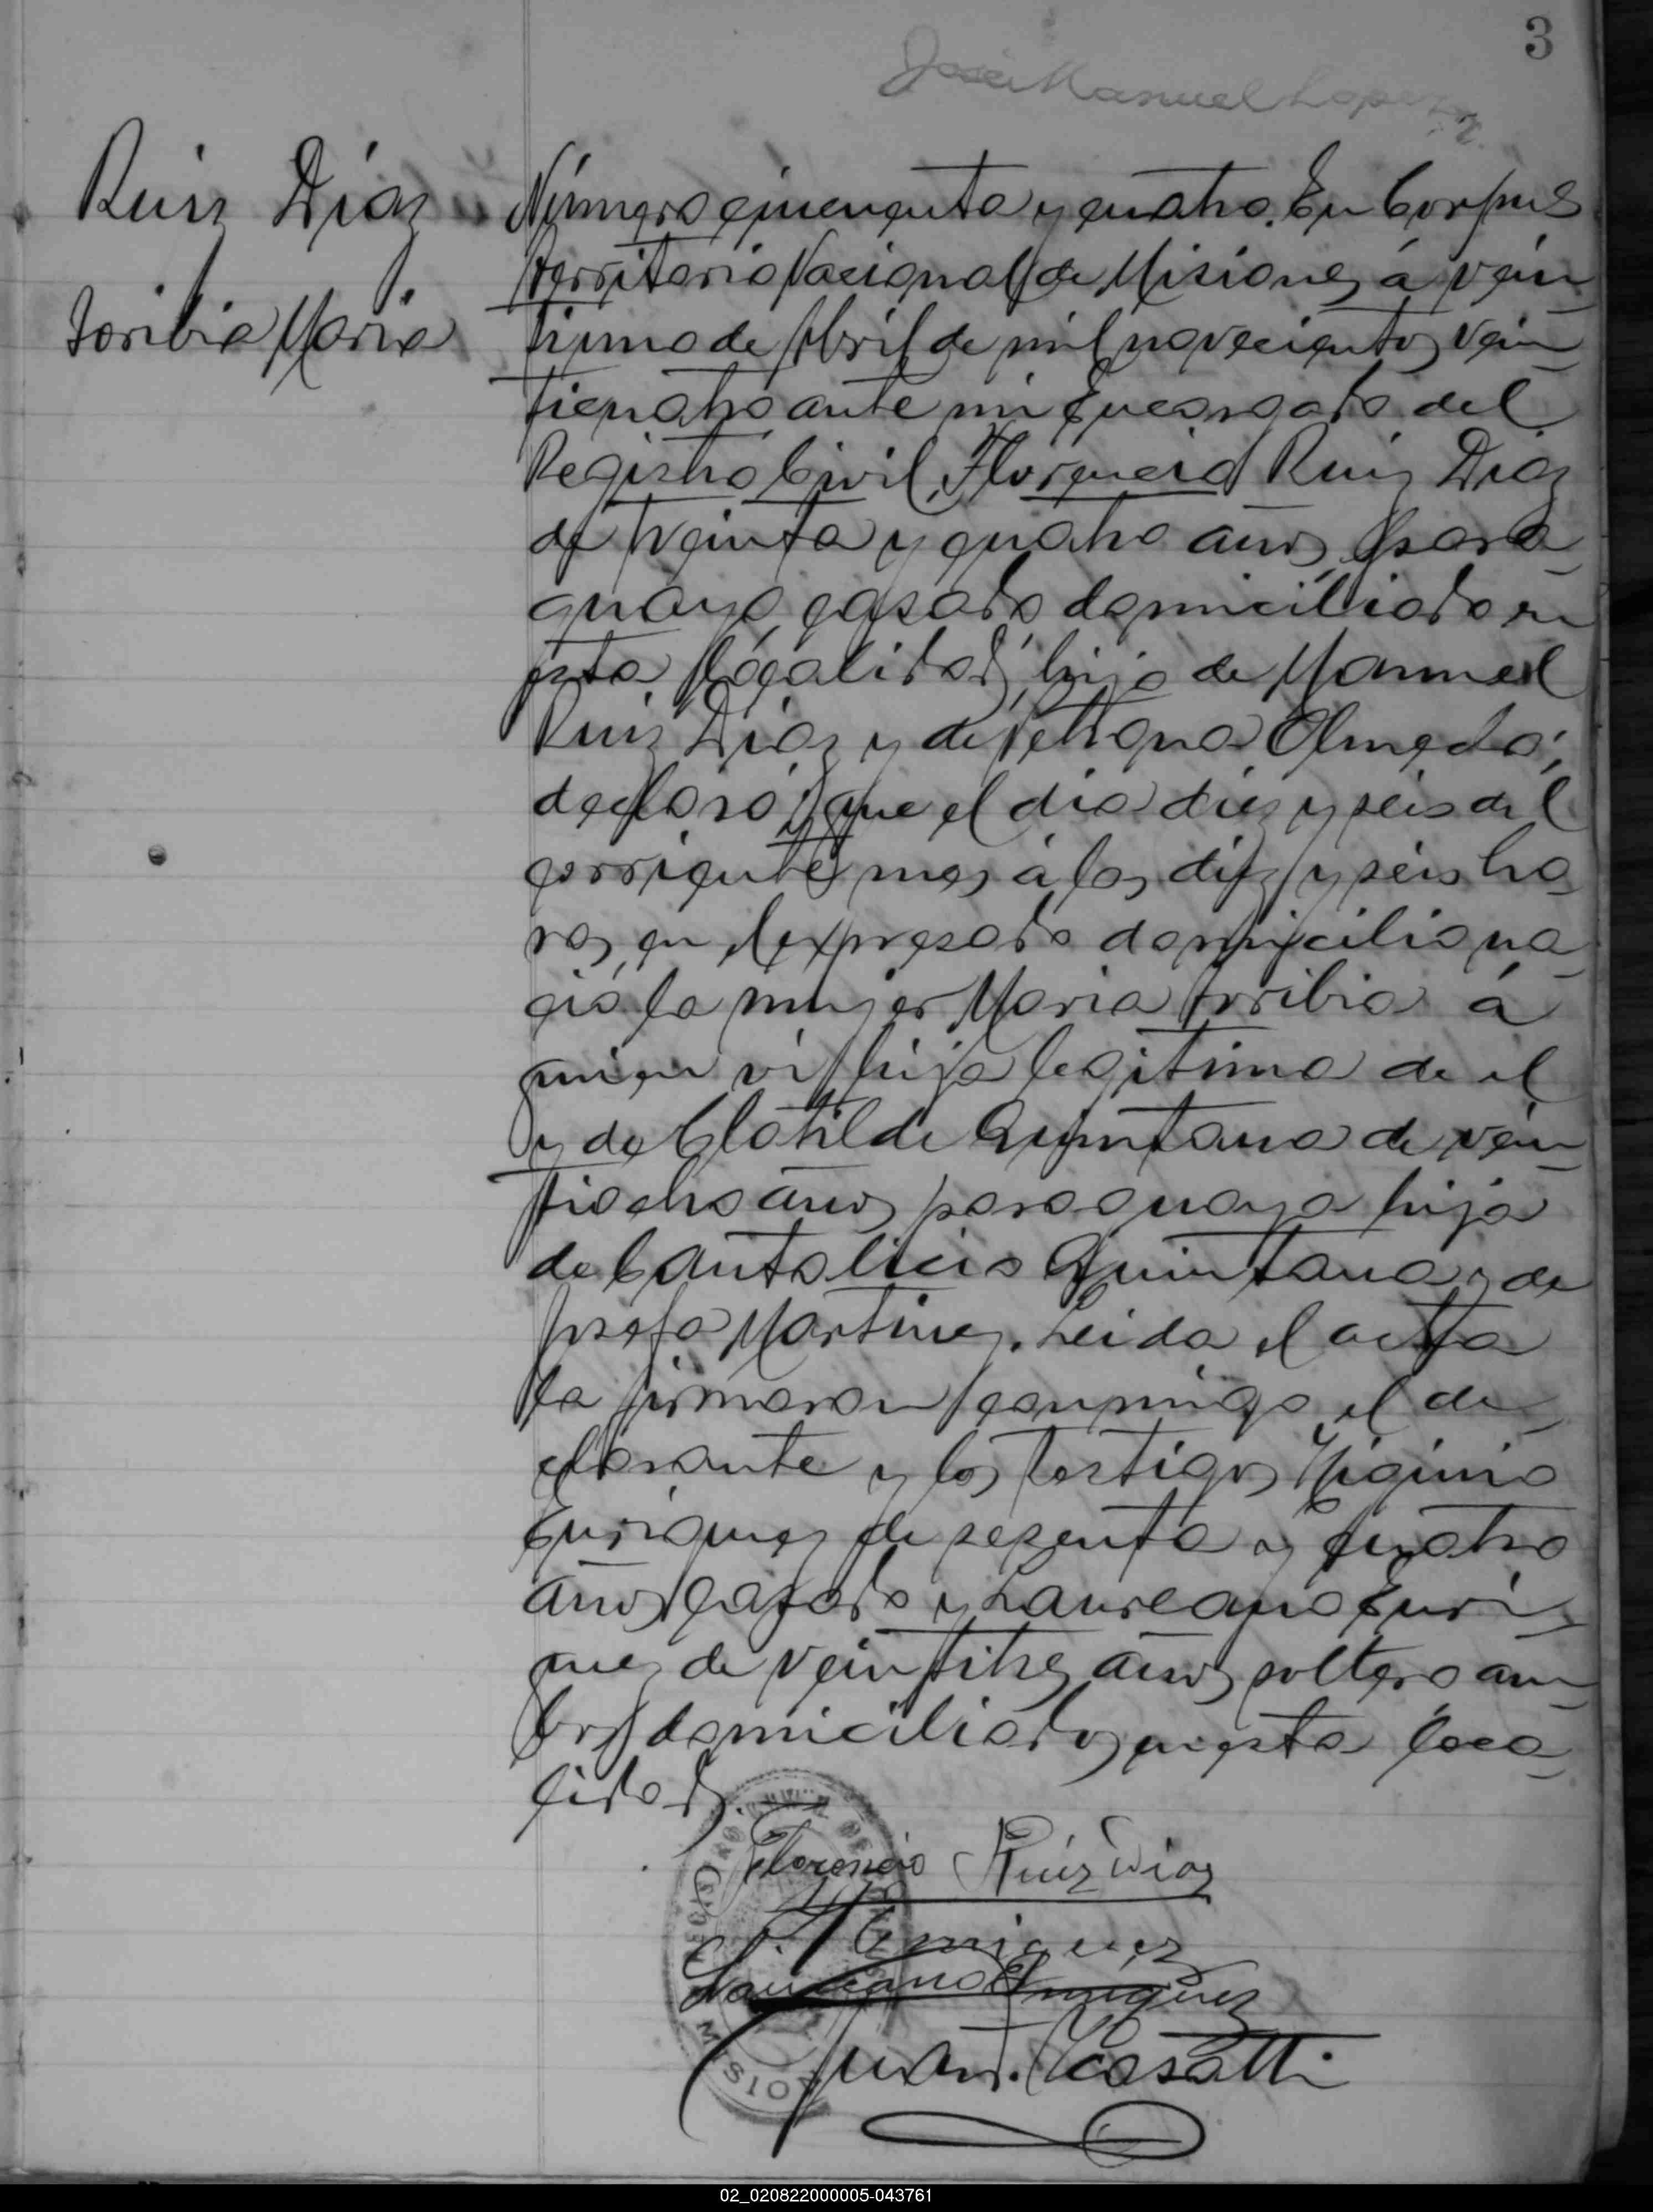 3
José Manuel Lopez
Ruiz Díaz
Toribia Maria
Número cincuenta y cuatro. En Corpus
territorio Nacional de Misiones á vein
tiuno de Abril de mil novecientos vein
ticuatro ante mi Encargado del
Registro Civil, Florencio Ruiz Diaz
de treinta y cuatro años, para
guayo, casado domiciliado en
esta localidad, hijo de Manuel
Ruiz Diaz y de Petrona Olmedo;
declaró: que el dia diez y seis del
corriente mes á las diez y seis ho
ras, en el expresado domicilio na
ció la mujer Maria Toribia á
quien vi hija legitima de el
y de Clotilde Quintana de vein
tiocho años paraguaya hija
de Cantalicio Quintana y de
Josefa Martinez. Leida el acta
la firmaron conmigo el de
clarante y los testigos Higinio
Enriquez de sesenta y cuatro
años, casado y Laureano Enri
quez de veintitres años, soltero am
bos domiciliados en esta loca
lidad.
Florencio Ruíz Diaz
H Enriquez
Laureano Enriquez
Juan. Cosatti
REGISTRO CIVIL DE
MISIO
02_020822000005-043761